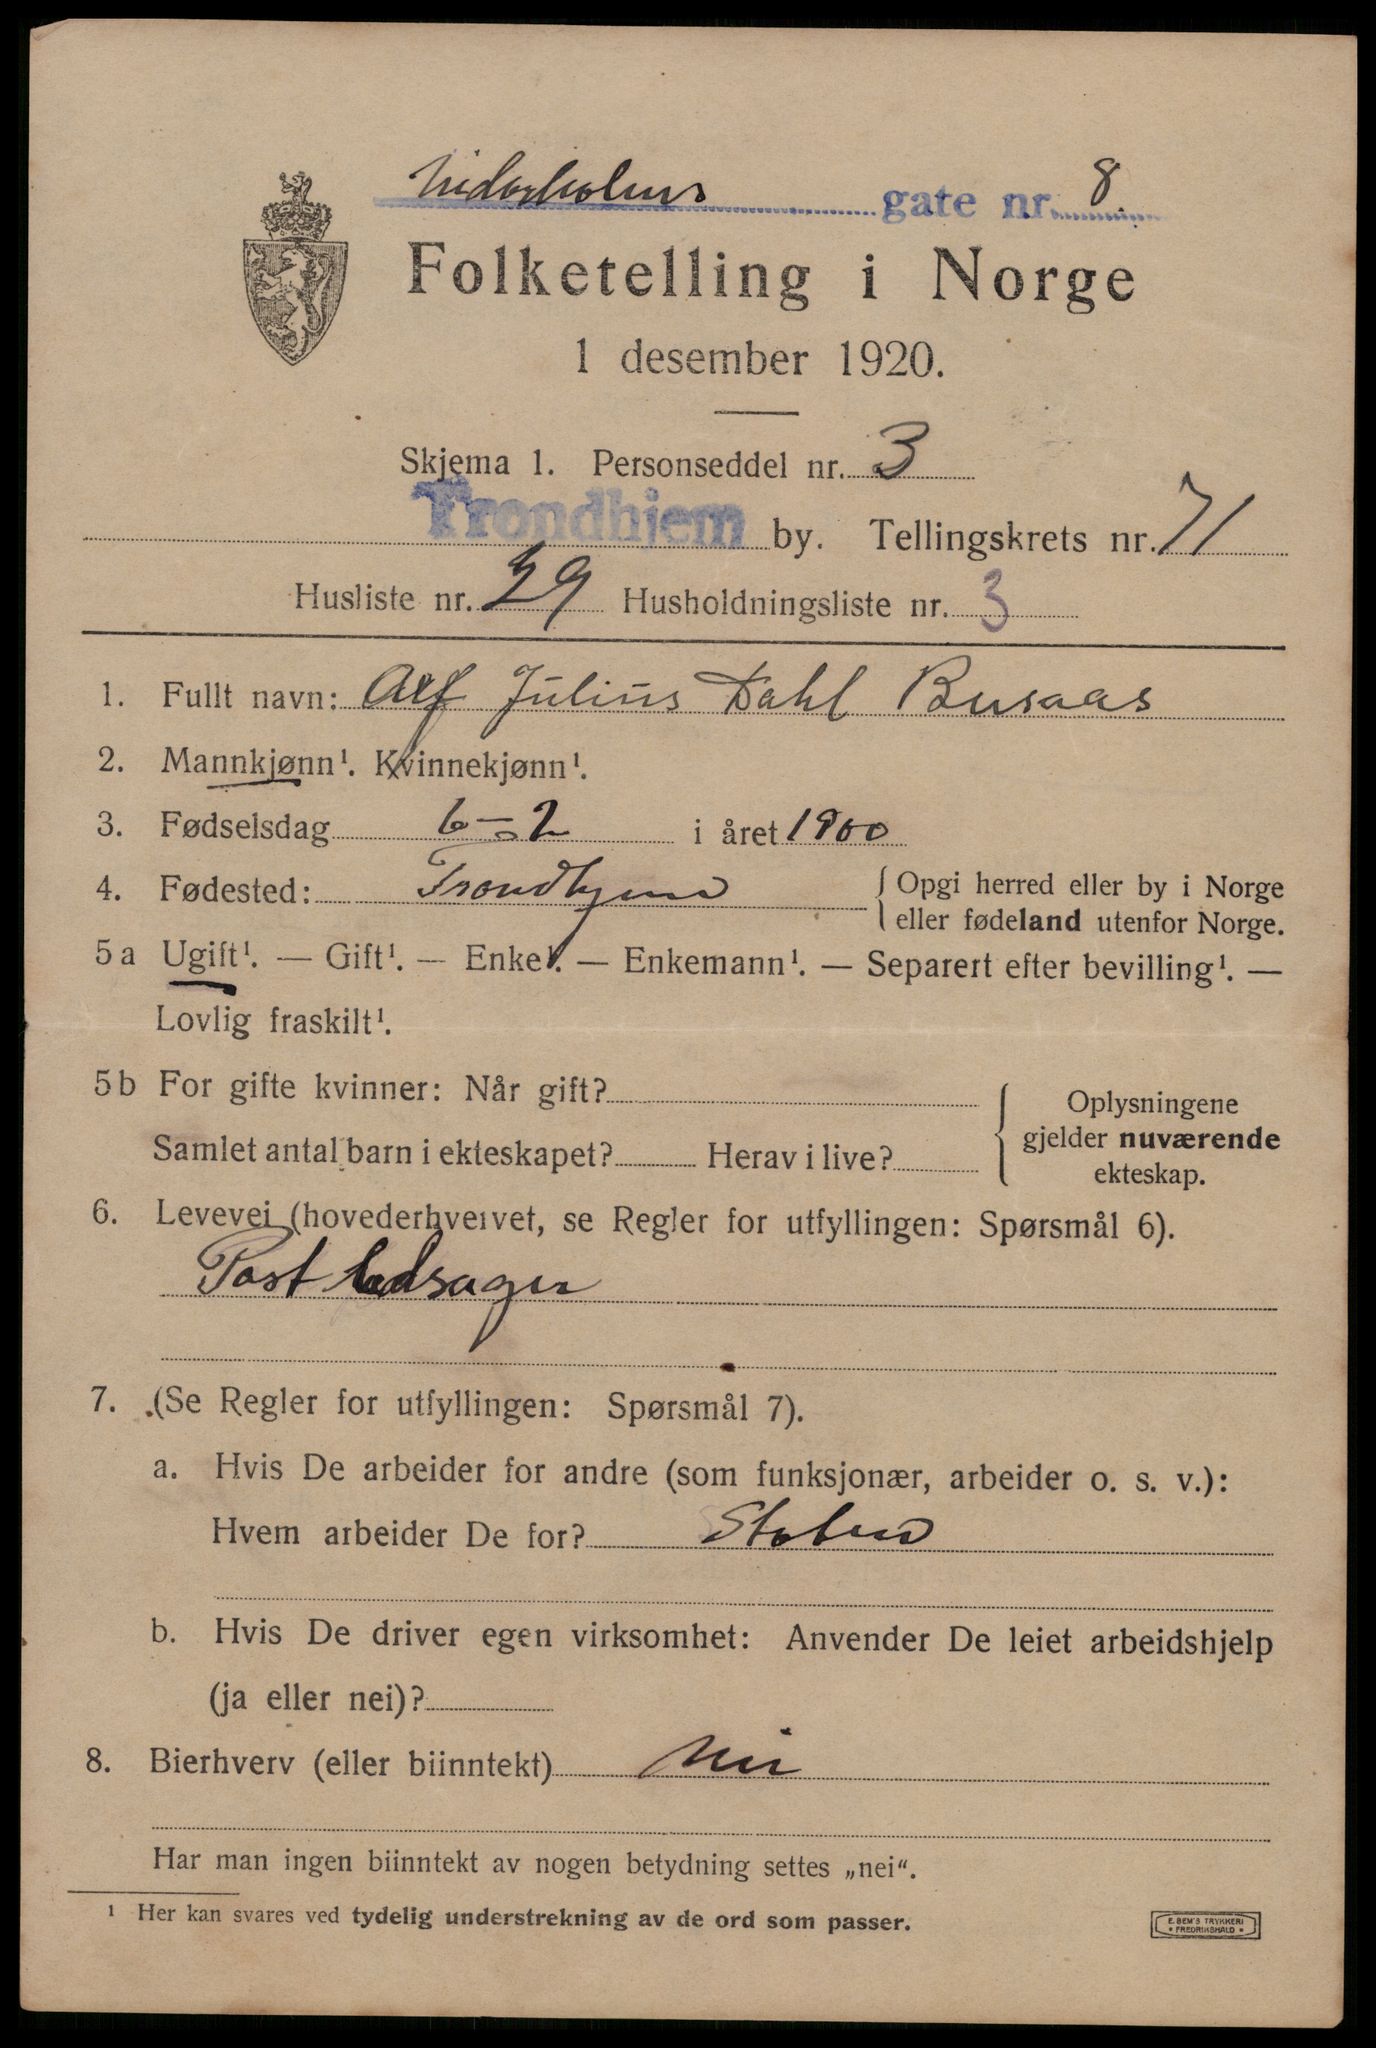 Nidarholms gate nr. 8.
Folketelling i Norge
1 desember 1920.
Skjema 1. Personseddel nr. 3
Trondhjem by. Tellingskrets nr. 71
Husliste nr. 29 Husholdningsliste nr. 3
1. Fullt navn: Alf Julius Dahl Busaas
2. Mannkjønn¹. Kvinnekjønn¹.
3. Fødselsdag 6-2 i året 1900
4. Fødested: Trondhjem { Opgi herred eller by i Norge
eller fødeland utenfor Norge.
5a Ugift¹. — Gift¹. — Enke¹. — Enkemann¹. — Separert efter bevilling¹. —
Lovlig fraskilt¹.
5b For gifte kvinner: Når gift?
Samlet antal barn i ekteskapet? Herav i live?
{ Oplysningene
gjelder nuværende
ekteskap.
6. Levevei (hovederhvervet, se Regler for utfyllingen: Spørsmål 6).
Post ledsager
7. (Se Regler for utfyllingen: Spørsmål 7).
a. Hvis De arbeider for andre (som funksjonær, arbeider o. s. v.):
Hvem arbeider De for? Staten
b. Hvis De driver egen virksomhet: Anvender De leiet arbeidshjelp
(ja eller nei)?
8. Bierhverv (eller biinntekt) Nei
Har man ingen biinntekt av nogen betydning settes „nei“.
¹ Her kan svares ved tydelig understrekning av de ord som passer.
E. BEM'S TRYKKERI
• FREDRIKSHALD •